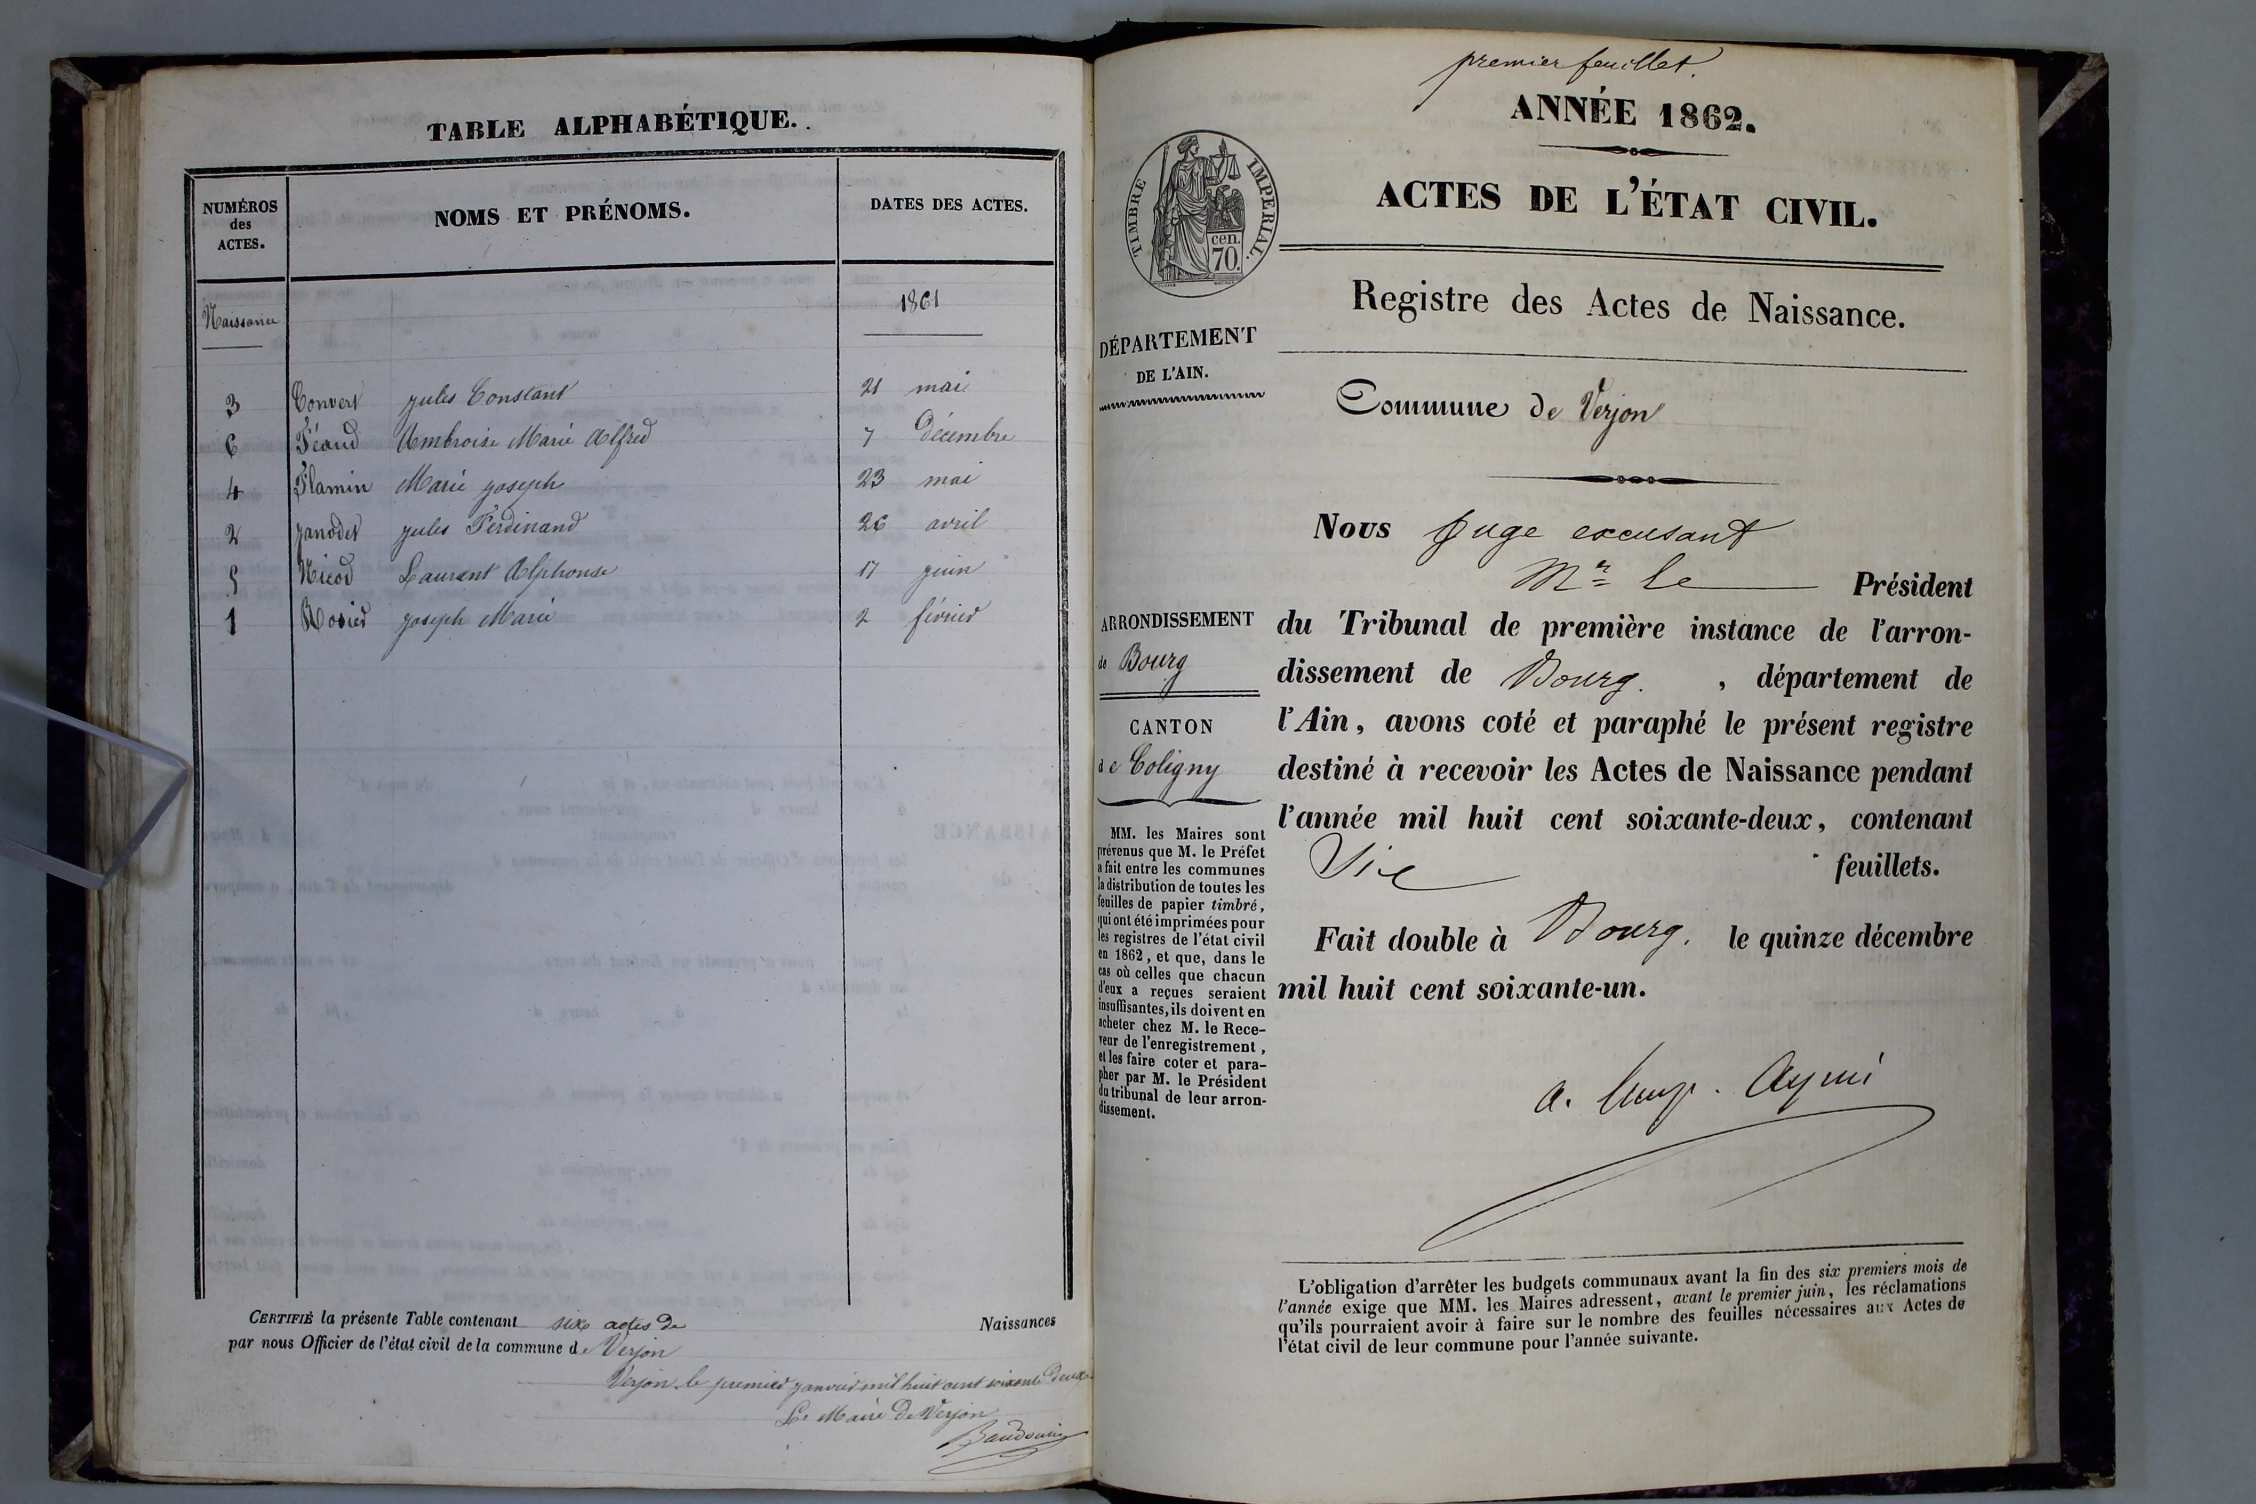 TABLE ALPHABÉTIQUE.
NUMÉROS
des
ACTES.
NOMS ET PRÉNOMS.
DATES DES ACTES.
Naissance
1861
3 Convert jules Constant 21 mai
6 Féaud Ambroise Marie Alfred 7 Décembre
4 Flamin Marie joseph 23 mai
2 janodet jules Ferdinand 26 avril
5 Nicod Laurent Alphonse 17 juin
1 Rosier joseph Marie 2 février
CERTIFIÉ la présente Table contenant six actes de Naissances
par nous Officier de l'état civil de la commune de Verjon
Verjon le premier janvier mil huit cent soixante Deux
Le Maire De Verjon
Baudouin
premier feuillet.
ANNÉE 1862.
TIMBRE IMPERIAL.
cen.
70.
ACTES DE L'ÉTAT CIVIL.
Registre des Actes de Naissance.
DÉPARTEMENT
DE L'AIN.
Commune de Verjon
Nous juge excusant
Mr le Président
ARRONDISSEMENT
de Bourg
CANTON
de Coligny
du Tribunal de première instance de l'arron-
dissement de Bourg. , département de
l'Ain, avons coté et paraphé le présent registre
destiné à recevoir les Actes de Naissance pendant
l'année mil huit cent soixante-deux, contenant
Six feuillets.
Fait double à Bourg. le quinze décembre
mil huit cent soixante-un.
MM. les Maires sont
prévenus que M. le Préfet
a fait entre les communes
la distribution de toutes les
feuilles de papier timbré,
qui ont été imprimées pour
les registres de l'état civil
en 1862, et que, dans le
cas où celles que chacun
d'eux a reçues seraient
insuffisantes, ils doivent en
acheter chez M. le Rece-
veur de l'enregistrement,
et les faire coter et para-
pher par M. le Président
du tribunal de leur arron-
dissement.
L'obligation d'arrêter les budgets communaux avant la fin des six premiers mois de
l'année exige que MM. les Maires adressent, avant le premier juin, les réclamations
qu'ils pourraient avoir à faire sur le nombre des feuilles nécessaires aux Actes de
l'état civil de leur commune pour l'année suivante.